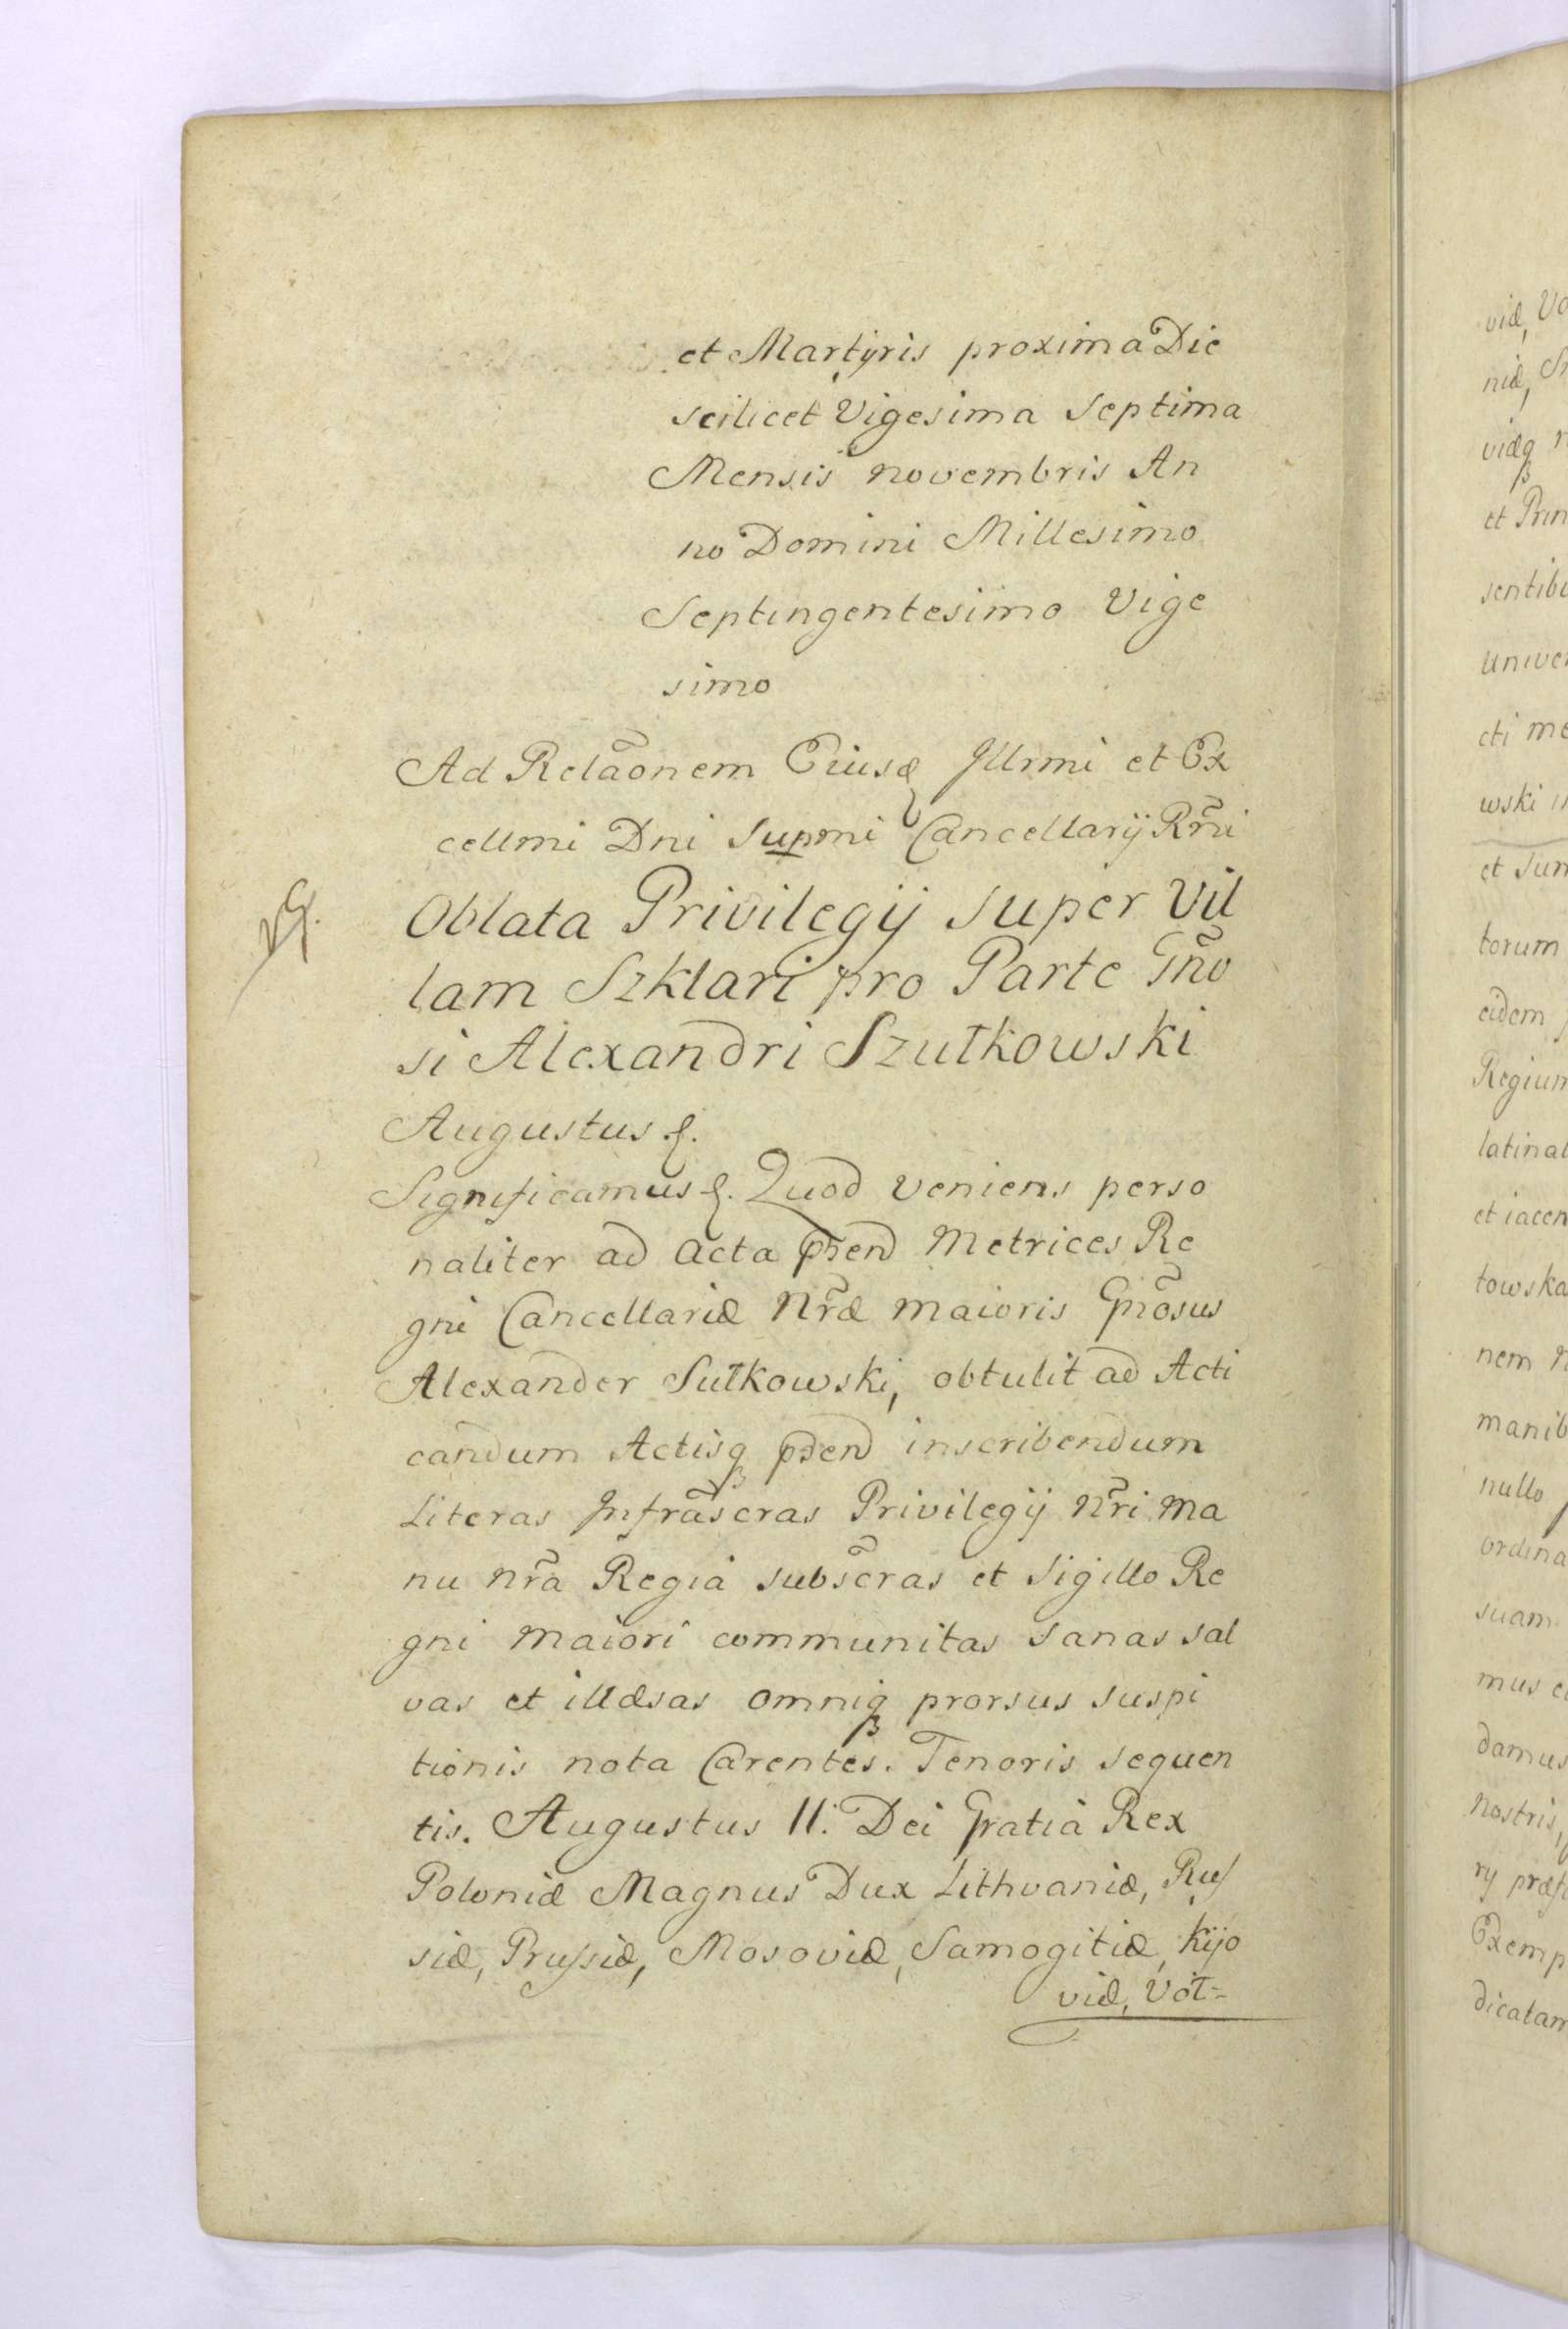 et Martyris proxima Die
scilicet Vigesima Septima
Mensis novembris An
no Domini Millesimo
Septingentesimo Vige
simo
Ad Relãonem Eiusd Illrmi et Ex
cellmi Dni Supmi Cancellarij Rñi
Oblata Privilegij super Vil
lam Szklari pro Parte Gño
si Alexandri Szułkowski
Augustus &.
Significamus &. Quod veniens perso
naliter ad Acta pñend Metrices Re
gni Cancellariæ Nræ maioris Gñosus
Alexander Sułkowski, obtulit ad Acti
candum Actisq pñend inscribendum
Literas Infrãscras Privilegij Nri ma
nu nrã Regiâ subscras et Sigillo Re
gni maiori communitas sanas sal
vas et illæsas omniq prorsus suspi
tionis nota Carentes. Tenoris sequen
tis. Augustus II. Dei Gratiâ Rex
Poloniæ Magnus Dux Lithvaniæ, Rus
siæ, Prussiæ, Mosoviæ, Samogitiæ, Kijo
viæ, Vol=
viæ, Vo
niæ,
viæq
et Prin
sentib
univer
cti me
wski
et Sum
torum
eidem
Regium
latinat
et iacen
towska
nem
manib
nullo
ordina
suam
mus
damus
Nostris,
rij præf
Exemp
dicatam